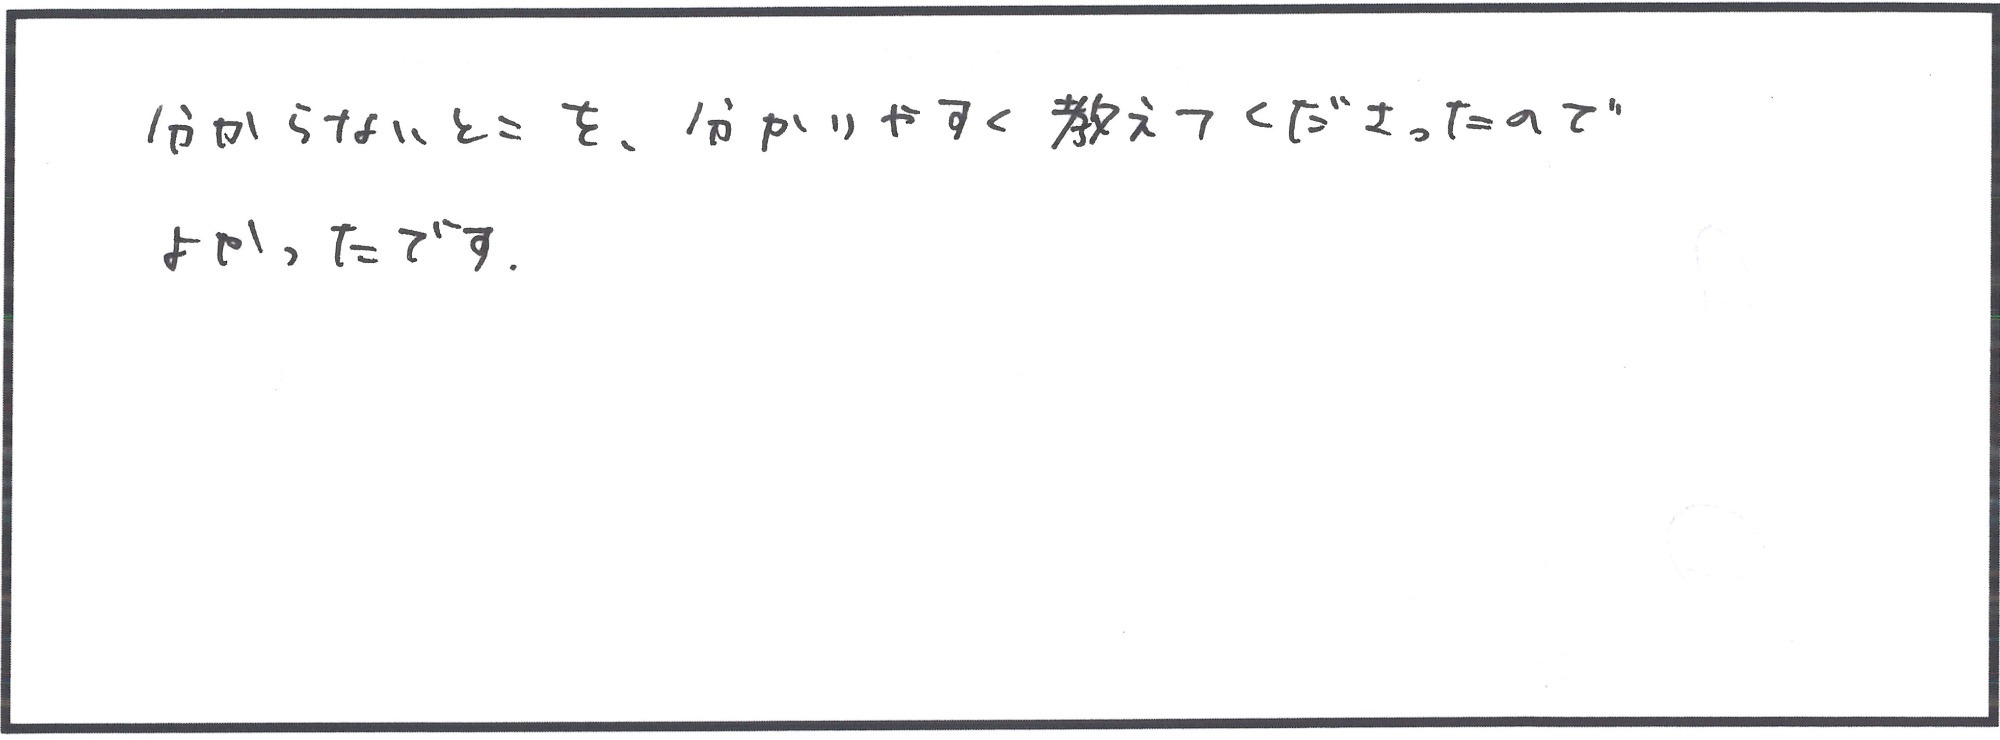 分からないとこを、分かりやすく教えてくださったので
よかったです.